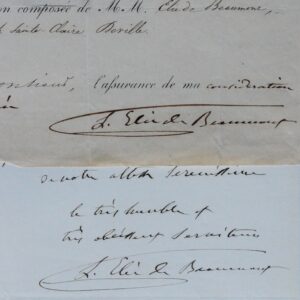 on composée de M M. Elie de Beaumont,
Sainte Claire Deville.
Monsieur, l'assurance de ma considération
L. Elie de Beaumont
de votre altesse Sérénissime
le très humble et
très obéissant serviteur
L. Elie de Beaumont